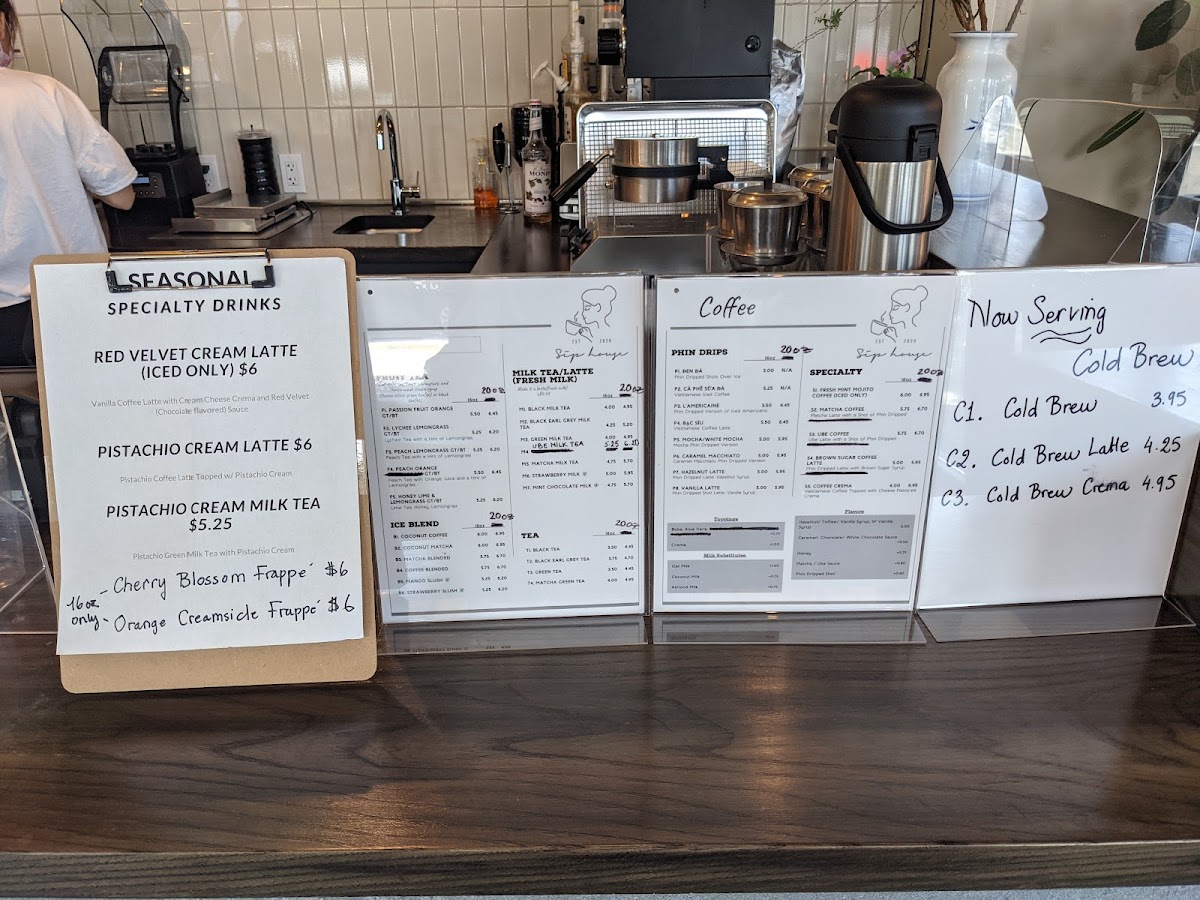 SEASONAL
SPECIALTY DRINKS
RED VELVET CREAM LATTE
(ICED ONLY) $6
Vanilla Coffee Latte with Cream Cheese Crema and Red Velvet
(Chocolate flavored) Sauce
PISTACHIO CREAM LATTE $6
Pistachio Coffee Latte Topped w/ Pistachio Cream
PISTACHIO CREAM MILK TEA
$5.25
Pistachio Green Milk Tea with Pistachio Cream
Cherry Blossom Frappé $6
16oz only - Orange Creamsicle Frappé $6
EST 2020
Sip house
FRUIT TEA
20oz
F1. PASSION FRUIT ORANGE
GT/BT 5.50 6.45
F2. LYCHEE LEMONGRASS
GT/BT 5.25 6.20
Lychee Tea with a Hint of Lemongrass
F3. PEACH LEMONGRASS GT/BT 5.25 6.20
Peach Tea with a Hint of Lemongrass
F4. PEACH ORANGE
GT/BT 5.50 6.45
Peach Tea with Orange Juice and a Hint of
Lemongrass
F5. HONEY LIME &
LEMONGRASS GT/BT 5.25 6.20
Lime Tea, Honey, Lemongrass
ICE BLEND
16oz 20oz
B1. COCONUT COFFEE 6.00 6.95
B2. COCONUT MATCHA 6.00 6.95
B3. MATCHA BLENDED 5.75 6.70
B4. COFFEE BLENDED 5.75 6.70
B5. MANGO SLUSH 5.25 6.20
B6. STRAWBERRY SLUSH 5.25 6.20
MILK TEA/LATTE
(FRESH MILK)
16oz 20oz
M1. BLACK MILK TEA 4.00 4.95
M2. BLACK EARL GREY MILK
TEA 4.25 5.20
M3. GREEN MILK TEA 4.00 4.95
M4. UBE MILK TEA 5.25 6.20
M5. MATCHA MILK TEA 4.75 5.70
M6. STRAWBERRY MILK 5.00 5.95
M7. MINT CHOCOLATE MILK 4.75 5.70
TEA
16oz 20oz
T1. BLACK TEA 3.50 4.45
T2. BLACK EARL GREY TEA 3.75 4.70
T3. GREEN TEA 3.50 4.45
T4. MATCHA GREEN TEA 4.00 4.95
Coffee
EST 2020
Sip house
PHIN DRIPS
16oz 20oz
P1. ĐEN ĐÁ 3.00 N/A
Phin Dripped Shots Over Ice
P2. CÀ PHÊ SỮA ĐÁ 5.25 N/A
Vietnamese Iced Coffee
P3. L'AMERICAINE 3.50 4.45
Phin Dripped Version of Iced Americano
P4. BẠC SỈU 5.50 6.45
Vietnamese Coffee Latte
P5. MOCHA/WHITE MOCHA 5.00 5.95
Mocha Phin Dripped Version
P6. CARAMEL MACCHIATO 5.00 5.95
Caramel Macchiato Phin Dripped Version
P7. HAZELNUT LATTE 5.00 5.95
Phin Dripped Latte, Hazelnut Syrup
P8. VANILLA LATTE 5.00 5.95
Phin Dripped Shot Latte, Vanilla Syrup
Toppings
Boba, Aloe Vera,
Crema +1.00
Milk Substitutes
Oat Milk +1.00
Coconut Milk
Almond Milk
SPECIALTY
16oz 20oz
S1. FRESH MINT MOJITO
COFFEE (ICED ONLY) 6.00 6.95
S2. MATCHA COFFEE 5.75 6.70
Matcha Latte with a Shot of Phin Dripped
S3. UBE COFFEE 5.75 6.70
Ube Latte with a Shot of Phin Dripped
S4. BROWN SUGAR COFFEE
LATTE 5.00 5.95
Phin Dripped Latte with Brown Sugar Syrup
S5. COFFEE CREMA 6.00 6.95
Vietnamese Coffee Topped with Cheese Flavored
Crema
Flavors
Hazelnut/ Toffee/ Vanilla Syrup, SF Vanilla
Syrup
Caramel/ Chocolate/ White Chocolate Sauce
Honey
Matcha / Ube Sauce
Phin Dripped Shot
Now Serving
Cold Brew
C1. Cold Brew 3.95
C2. Cold Brew Latte 4.25
C3. Cold Brew Crema 4.95